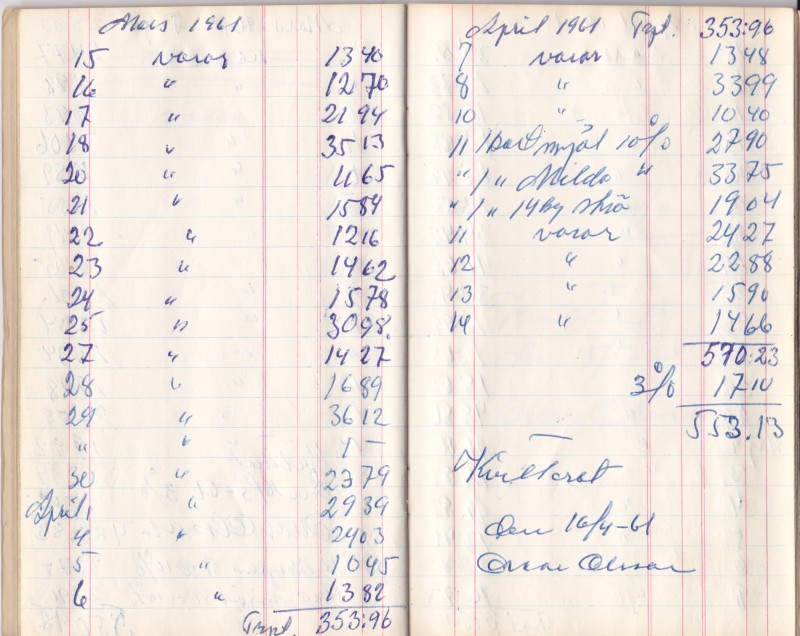 Mars 1961
15 varor 13 40
16 " 12 70
17 " 21 94
18 " 35 13
20 " 11 65
21 " 15 84
22 " 12 16
23 " 14 62
24 " 15 78
25 " 30 98
27 " 14 27
28 " 16 89
29 " 36 12
" " 1 —
30 " 23 79
April 1 " 29 39
4 " 24 03
5 " 10 45
6 " 13 82
Trpt. 353:96
April 1961 Trpt. 353:96
7 varor 13 48
8 " 33 99
10 " 10 40
11 1 mjöl 10% 27 90
" 1 " " 33 75
" 1 " 14 kg 19 04
11 varor 24 27
12 " 22 88
13 " 15 90
14 " 14 66
570:23
3% 17 10
553.13
Kvitterat
Den 16/4-61